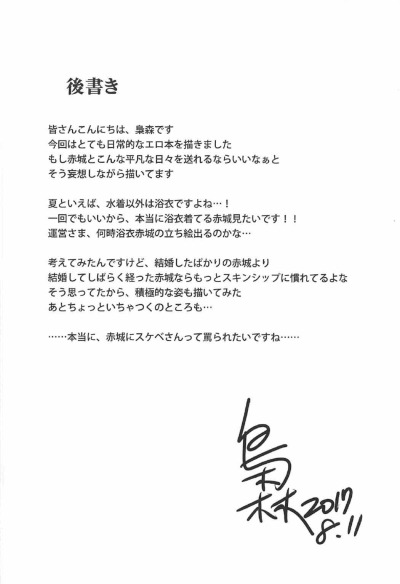 後書き
皆さんこんにちは、梟森です
今回はとても日常的なエロ本を描きました
もし赤城とこんな平凡な日々を送れるならいいなぁと
そう妄想しながら描いてます
夏といえば、水着以外は浴衣ですよね…！
一回でもいいから、本当に浴衣着てる赤城見たいです！！
運営さま、何時浴衣赤城の立ち絵出るのかな…
考えてみたんですけど、結婚したばかりの赤城より
結婚してしばらく経った赤城ならもっとスキンシップに慣れてるよな
そう思ってたから、積極的な姿も描いてみた
あとちょっといちゃつくのところも…
……本当に、赤城にスケベさんって罵られたいですね……
梟
森 2017
8.11